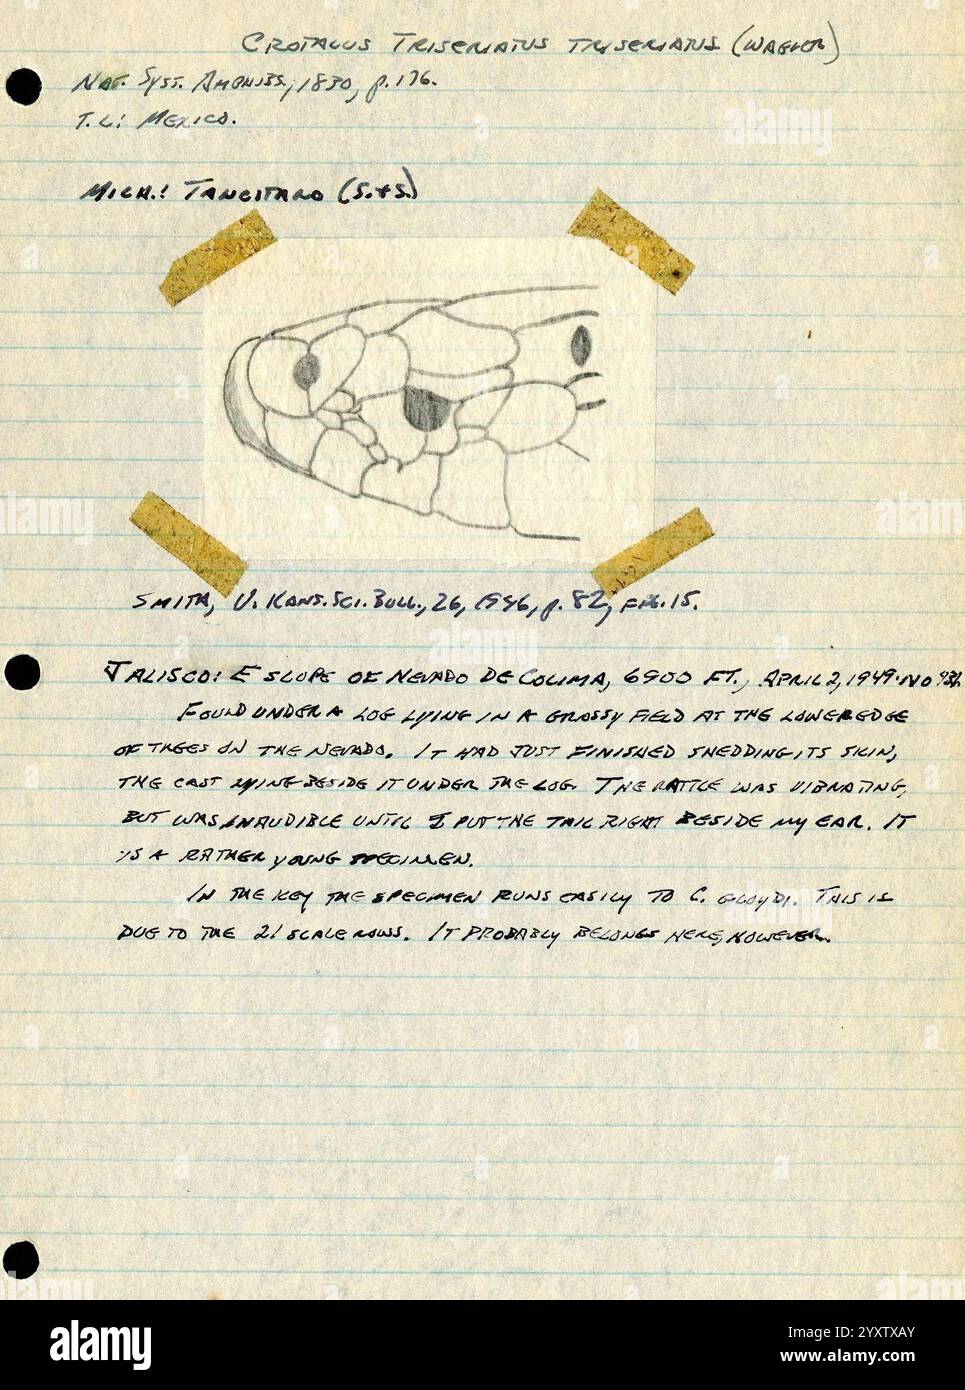 CROTALUS TRISERIATUS TRISERIATUS (WAGLER)
NAT. SYST. AMPHIBS, 1830, p. 176.
T.L: MEXICO.
MICH.: TANCITARO (S.+S.)
SMITH, U. KANS. SCI. BULL., 26, 1946, p. 82, FIG. 15.
JALISCO: E SLOPE OF NEVADO DE COLIMA, 6900 FT., APRIL 2, 1949. NO
FOUND UNDER A LOG LYING IN A GRASSY FIELD AT THE LOWER EDGE
OF TREES ON THE NEVADO. IT HAD JUST FINISHED SHEDDING ITS SKIN,
THE CAST LYING BESIDE IT UNDER THE LOG. THE RATTLE WAS VIBRATING,
BUT WAS INAUDIBLE UNTIL I PUT THE TAIL RIGHT BESIDE MY EAR. IT
IS A RATHER YOUNG SPECIMEN.
IN THE KEY THE SPECIMEN RUNS EASILY TO C. GLOYDI. THIS IS
DUE TO THE 21 SCALE ROWS. IT PROBABLY BELONGS HERE, HOWEVER.
alamy
Image ID: 2YXTXAY
www.alamy.com